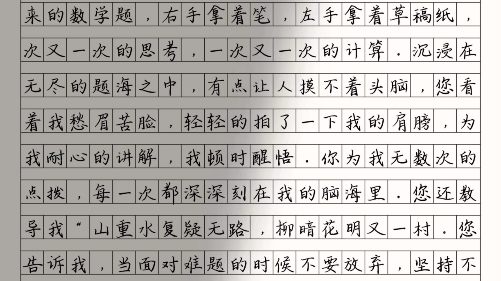 来的数学题，右手拿着笔，左手拿着草稿纸，
次又一次的思考，一次又一次的计算．沉浸在
无尽的题海之中，有点让人摸不着头脑，您看
着我愁眉苦脸，轻轻的拍了一下我的肩膀，为
我耐心的讲解，我顿时醒悟．你为我无数次的
点拨，每一次都深深刻在我的脑海里．您还教
导我“山重水复疑无路，柳暗花明又一村．您
告诉我，当面对难题的时候不要放弃，坚持不